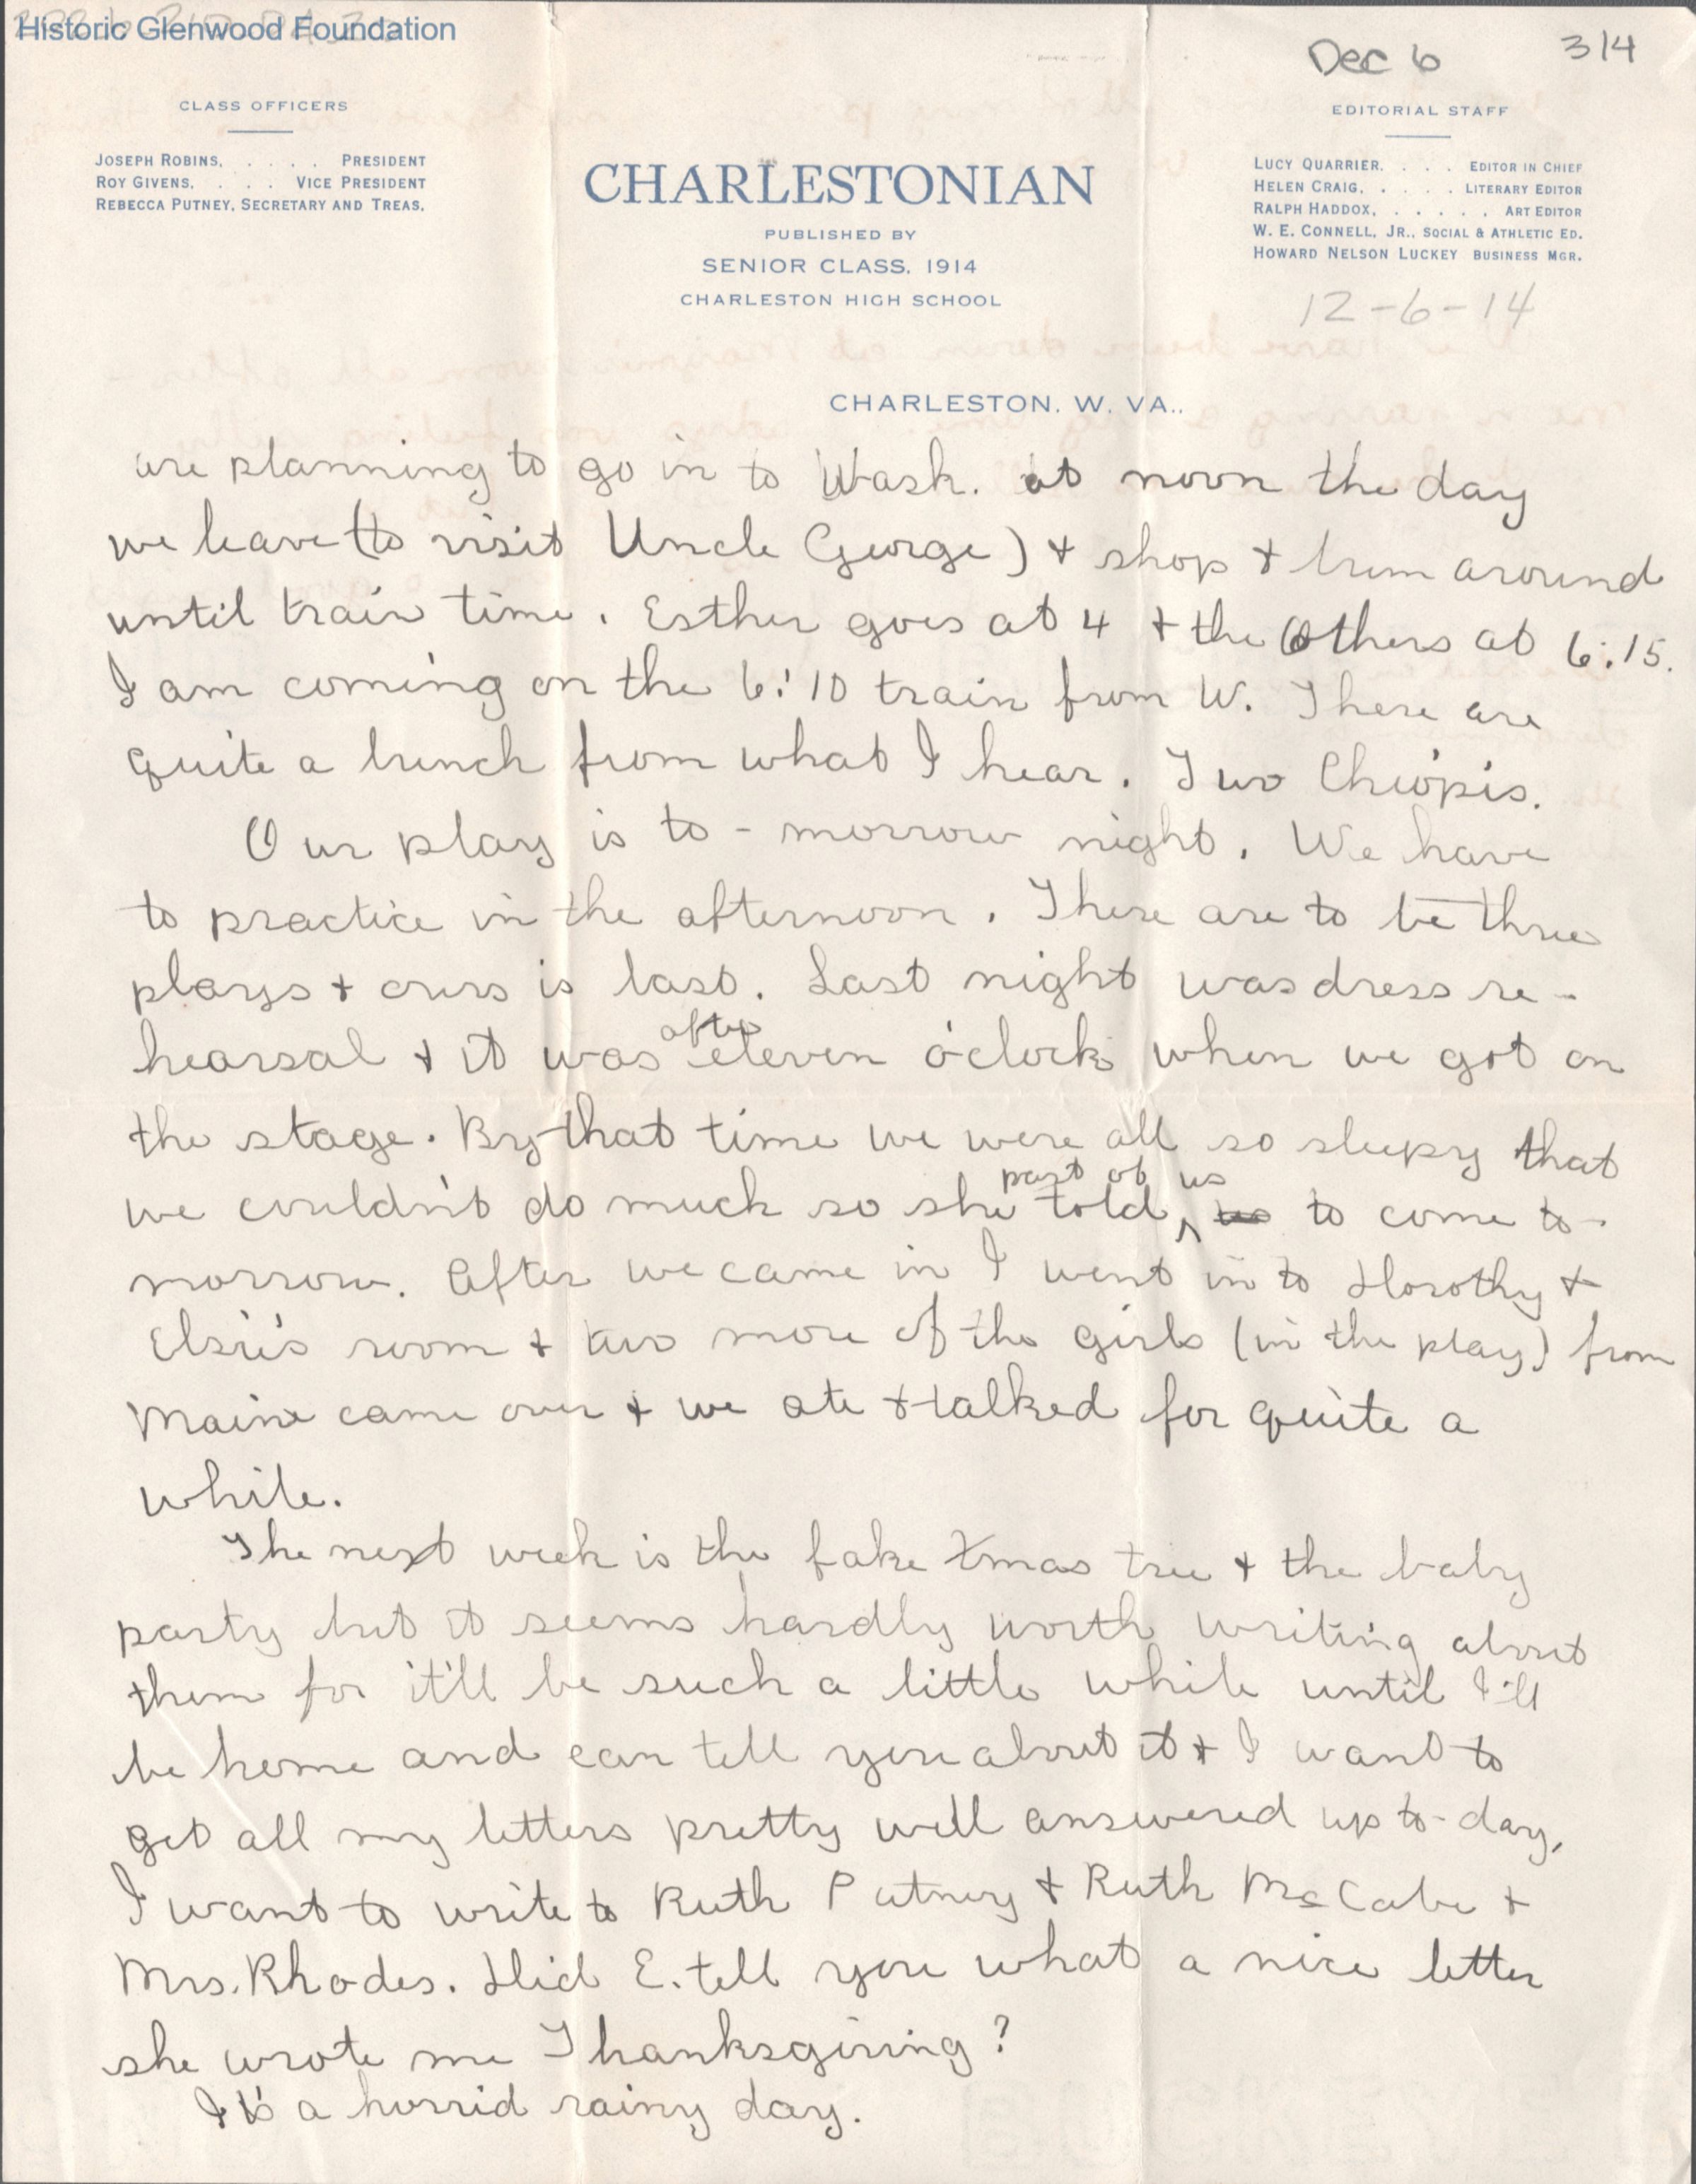 Historic Glenwood Foundation
Dec 6 3/4
CLASS OFFICERS
JOSEPH ROBINS, . . . . PRESIDENT
ROY GIVENS, . . . VICE PRESIDENT
REBECCA PUTNEY, SECRETARY AND TREAS.
CHARLESTONIAN
PUBLISHED BY
SENIOR CLASS, 1914
CHARLESTON HIGH SCHOOL
EDITORIAL STAFF
LUCY QUARRIER, . . . EDITOR IN CHIEF
HELEN CRAIG, . . . . LITERARY EDITOR
RALPH HADDOX, . . . . . ART EDITOR
W. E. CONNELL, JR., SOCIAL & ATHLETIC ED.
HOWARD NELSON LUCKEY BUSINESS MGR.
12-6-14
CHARLESTON, W. VA.,
are planning to go in to Wash. at noon the day
we leave (to visit Uncle George) + shop + bum around
until train time. Esther goes at 4 + the Others at 6:15.
I am coming on the 6:10 train from W. There are
quite a bunch from what I hear. Two
Our play is to-morrow night. We have
to practice in the afternoon. There are to be three
plays + ours is last. Last night was dress re-
hearsal + it was after eleven o'clock when we got on
the stage. By that time we were all so sleepy that
we couldn't do much so she told part of us to come to-
morrow. After we came in I went in to Dorothy +
Elsie's room + two more of the girls (in the play) from
Maine came over + we ate + talked for quite a
while.
The next week is the fake Xmas tree + the baby
party but it seems hardly worth writing about
them for it'll be such a little while until I'll
be home and can tell you about it + I want to
get all my letters pretty well answered up to-day,
I want to write to Ruth Putney + Ruth McCabe +
Mrs. Rhodes. Did E. tell you what a nice letter
she wrote me Thanksgiving?
It's a horrid rainy day.